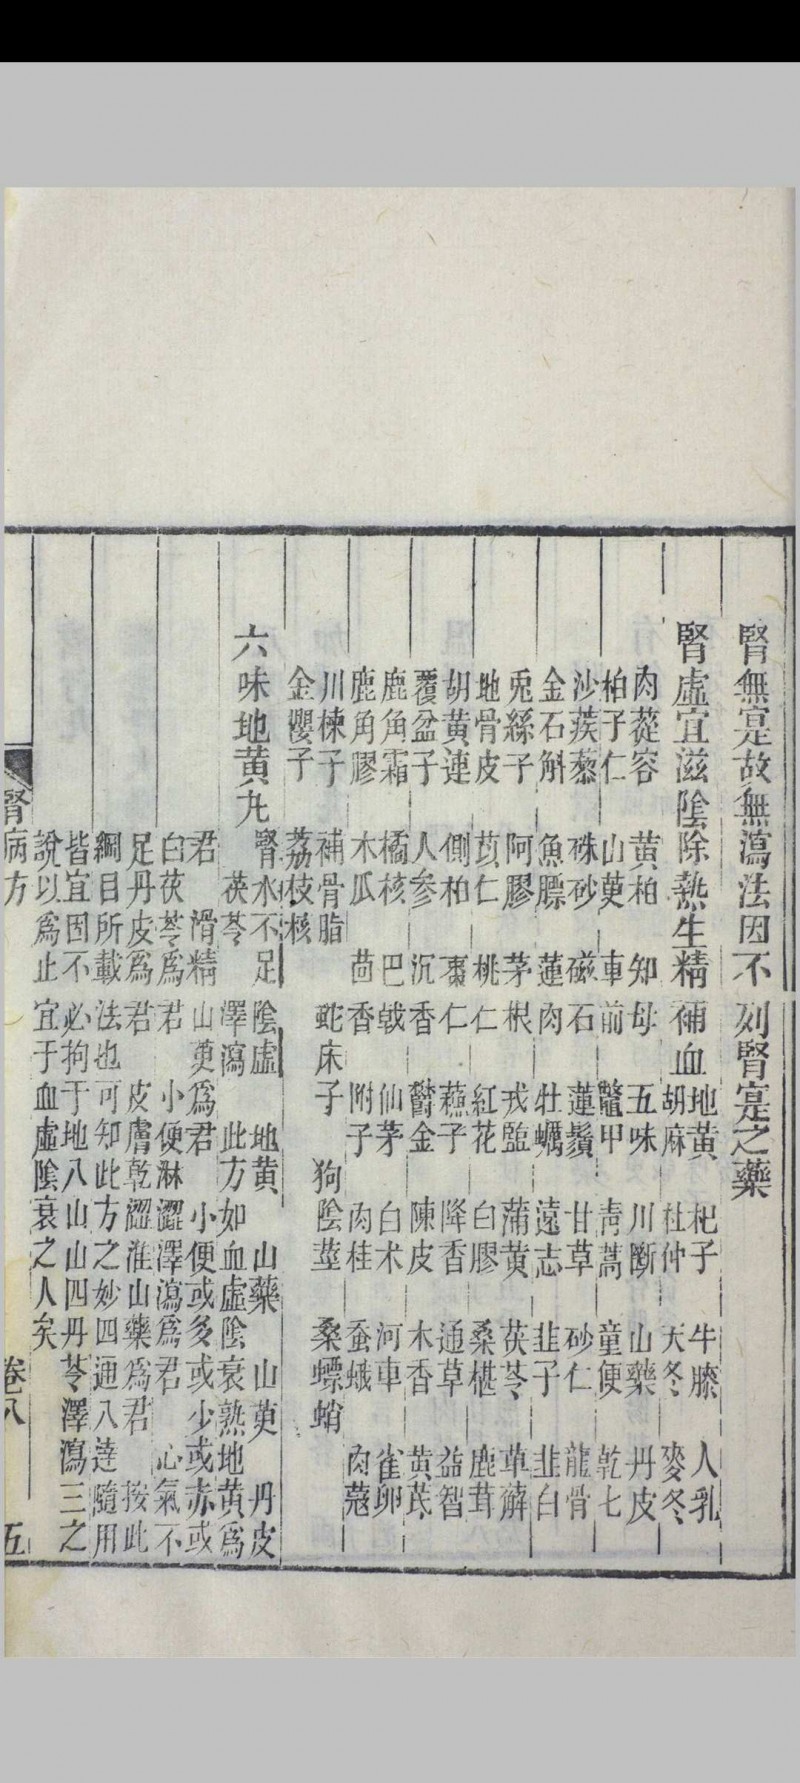 腎無寔故無瀉法因不列腎寔之藥
腎虛宜滋陰除熱生精補血
地黃 杞子 牛膝 人乳
胡麻 杜仲 天冬 麥冬
肉蓯容 黃柏 知母 五味 川斷 山藥 丹皮
柏子仁 山萸 車前 鼈甲 青蒿 童便 乾七
沙蒺藜 硃砂 磁石 蓮鬚 甘草 砂仁 龍骨
金石斛 魚膘 蓮肉 牡蠣 遠志 韭子 韭白
兎絲子 阿膠 茅根 戎鹽 蒲黃 茯苓 萆薢
地骨皮 苡仁 桃仁 紅花 白膠 桑椹 鹿茸
胡黃連 側柏 棗仁 蘓子 降香 通草 益智
覆盆子 人參 沉香 鬱金 陳皮 木香 黃芪
鹿角霜 橘核 巴戟 仙茅 白术 河車 雀卵
鹿角膠 木瓜 茴香 附子 肉桂 蚕蛾 肉蔻
川楝子 補骨脂 蛇床子 狗陰莖 桑螵蛸
金櫻子 荔枝核
六味地黃丸
腎水不足 陰虛 地黃 山藥 山萸 丹皮
茯苓 澤瀉 此方如血虛陰衰熟地黃爲
君 滑精 山萸爲君 小便或多或少或赤或
白茯苓爲君 小便淋澀澤瀉爲君 心氣不
足丹皮爲君 皮膚乾澀淮山藥爲君 按此
綱目所載法也可知此方之妙四通八達隨用
皆宜固不必拘于地八山山四丹苓澤瀉三之
說以爲止宜于血虛陰衰之人矣
腎病方 卷八 五